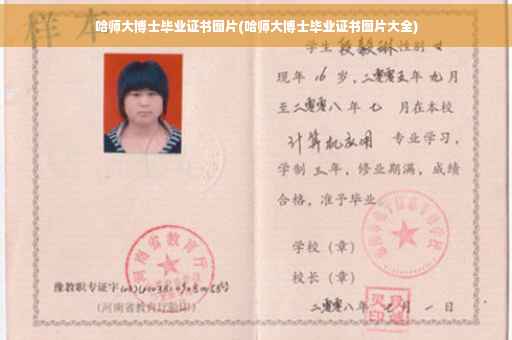 哈师大博士毕业证书图片(哈师大博士毕业证书图片大全)
样本
学生 段毅琳 性别 女
现年 16 岁，二零零五年 九月
至二零零八 年 七 月在本校
计算机应用 专业学习，
学制 三 年，修业期满，成绩
合格，准予毕业
学校（章）
校长（章）
二零零八年 七 月 一 日
河南省教育厅
豫教职专证字
(河南省教育厅验印)